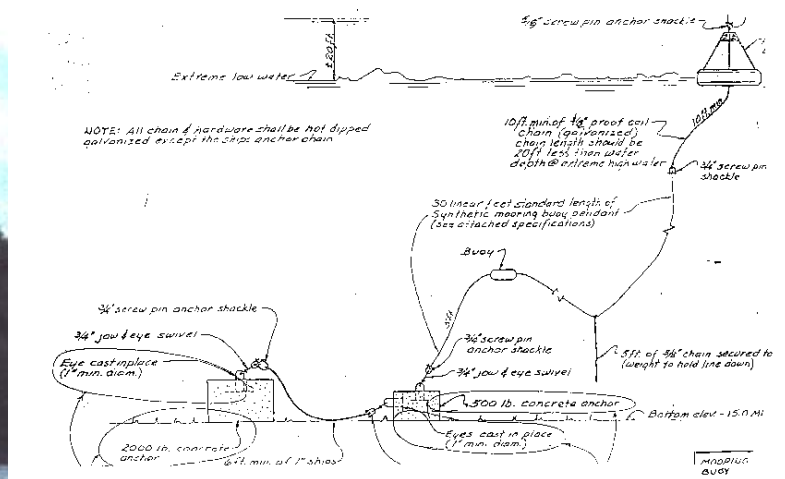 screw pin anchor shackle
±20ft.
Extreme low water
NOTE: All chain & hardware shall be hot dipped
galvanized except the ships anchor chain
10ft. min. of proof coil
chain (galvanized)
chain length should be
20ft less than water
depth @ extreme high water
10ft. min
3/4" screw pin
shackle
30 linear feet standard length of
Synthetic mooring buoy pendant
(see attached specifications)
Buoy
3/4" screw pin anchor shackle
3/4" jaw & eye swivel
Eye cast in place
(1" min. diam.)
5ft.
3/4" screw pin
anchor shackle
3/4" jaw & eye swivel
5ft. of 3/4" chain secured to
weight to hold line down)
500 lb. concrete anchor
Bottom elev. -15.0
Eyes cast in place
(1" min. diam.)
2000 lb. concrete
anchor
6ft. min. of 1" ships
MOORING
BUOY